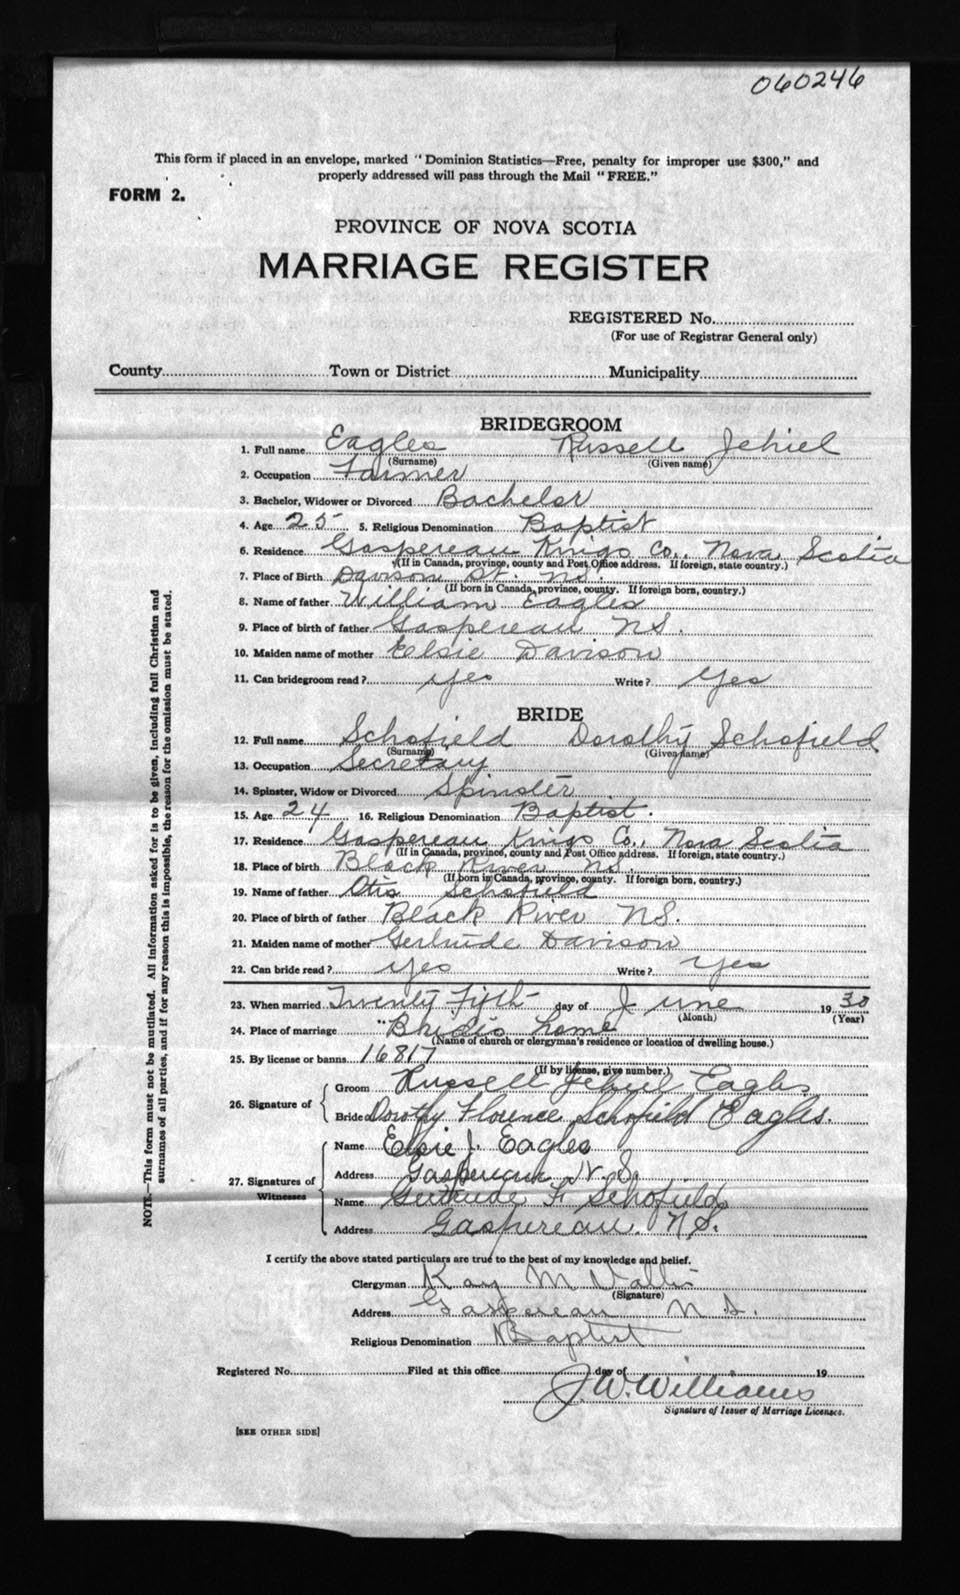 060246
This form if placed in an envelope, marked "Dominion Statistics—Free, penalty for improper use $300," and
properly addressed will pass through the Mail "FREE."
FORM 2.
PROVINCE OF NOVA SCOTIA
MARRIAGE REGISTER
REGISTERED No.
(For use of Registrar General only)
County Town or District Municipality
BRIDEGROOM
1. Full name Eagles Russell Jehiel
(Surname) (Given name)
2. Occupation Farmer
3. Bachelor, Widower or Divorced Bachelor
4. Age 25 5. Religious Denomination Baptist
6. Residence Gaspereau Kings Co., Nova Scotia
(If in Canada, province, county and Post Office address. If foreign, state country.)
7. Place of Birth Davison St. NS.
(If born in Canada, province, county. If foreign born, country.)
8. Name of father William Eagles
9. Place of birth of father Gaspereau NS.
10. Maiden name of mother Elsie Davison
11. Can bridegroom read? yes Write? Yes
BRIDE
12. Full name Schofield Dorothy Schofield
(Surname) (Given name)
13. Occupation Secretary
14. Spinster, Widow or Divorced Spinster
15. Age 24 16. Religious Denomination Baptist.
17. Residence Gaspereau Kings Co., Nova Scotia
(If in Canada, province, county and Post Office address. If foreign, state country.)
18. Place of birth Black River NS.
(If born in Canada, province, county. If foreign born, country.)
19. Name of father Otis Schofield
20. Place of birth of father Black River NS.
21. Maiden name of mother Gertrude Davison
22. Can bride read? yes Write? yes
23. When married Twenty Fifth day of June 1930
(Month) (Year)
24. Place of marriage "Bride's home
(Name of church or clergyman's residence or location of dwelling house.)
25. By license or banns 16817
(If by license, give number.)
26. Signature of Groom Russell Jehiel Eagles
Bride Dorothy Florence Schofield Eagles.
27. Signatures of Witnesses Name Elsie J. Eagles
Address Gaspereau N.S.
Name Gertrude F. Schofield
Address Gaspereau. N.S.
I certify the above stated particulars are true to the best of my knowledge and belief.
Clergyman Ray M
(Signature)
Address Gaspereau N.S.
Religious Denomination Baptist
Registered No. Filed at this office day of 19
J.W. Williams
Signature of Issuer of Marriage Licenses.
[SEE OTHER SIDE]
NOTE.—This form must not be mutilated. All information asked for is to be given, including full Christian and
surnames of all parties, and if for any reason this is impossible, the reason for the omission must be stated.